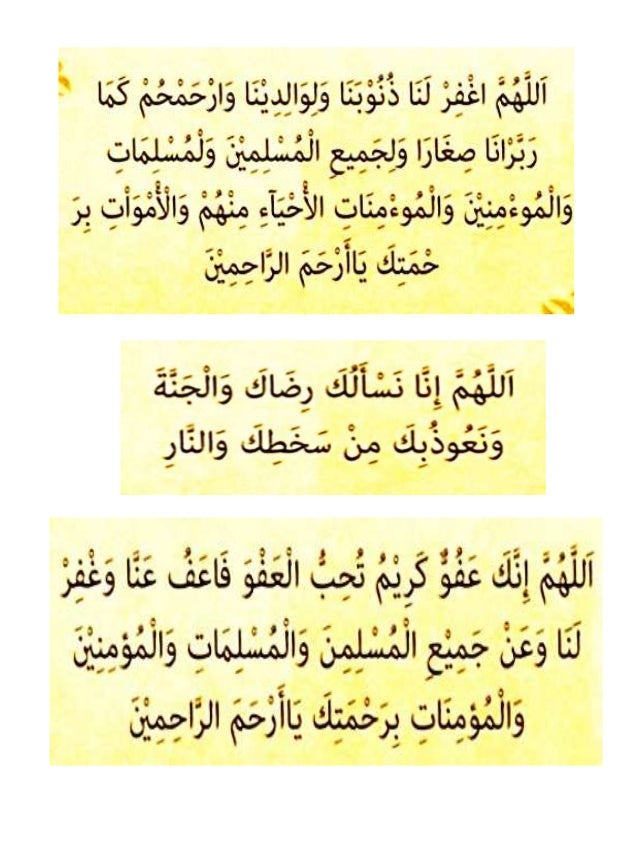 اَللَّهُمَّ اغْفِرْ لَنَا ذُنُوْبَنَا وَلِوَالِدِيْنَا وَارْحَمْحُمْ كَمَا
رَبَّرْانَا صِغَارَا وَلِجَمِيعِ الْمُسْلِمِيْنَ وَلْمُسْلِمَاتِ
وَالْمُوءْمِنِيْنَ وَالْمُوءْمِنَاتِ الأْحْيَآءِ مِنْهُمْ وَالْأْمْوَاْتِ بِرَ
حْمَتِكَ يَاأَرْحَمَ الرَّاحِمِيْنَ
اَللَّهُمَّ إِنَّا نَسْأَلُكَ رِضَاكَ وَالْجَنَّةَ
وَنَعُوذُبِكَ مِنْ سَخَطِكَ وَالنَّارِ
اَللَّهُمَّ إِنَّكَ عَفُوٌّ كَرِيْمُ تُحِبُّ الْعَفْوَ فَاعَفُ عَنَّا وَغْفِرْ
لَنَا وَعَنْ جَمِيْعِ الْمُسْلِمِنَ وَالْمُسْلِمَاتِ وَالْمُؤمِنِيْنَ
وَالْمُؤمِنَاتِ بِرَحْمَتِكَ يَاأَرْحَمَ الرَّاحِمِيْنَ